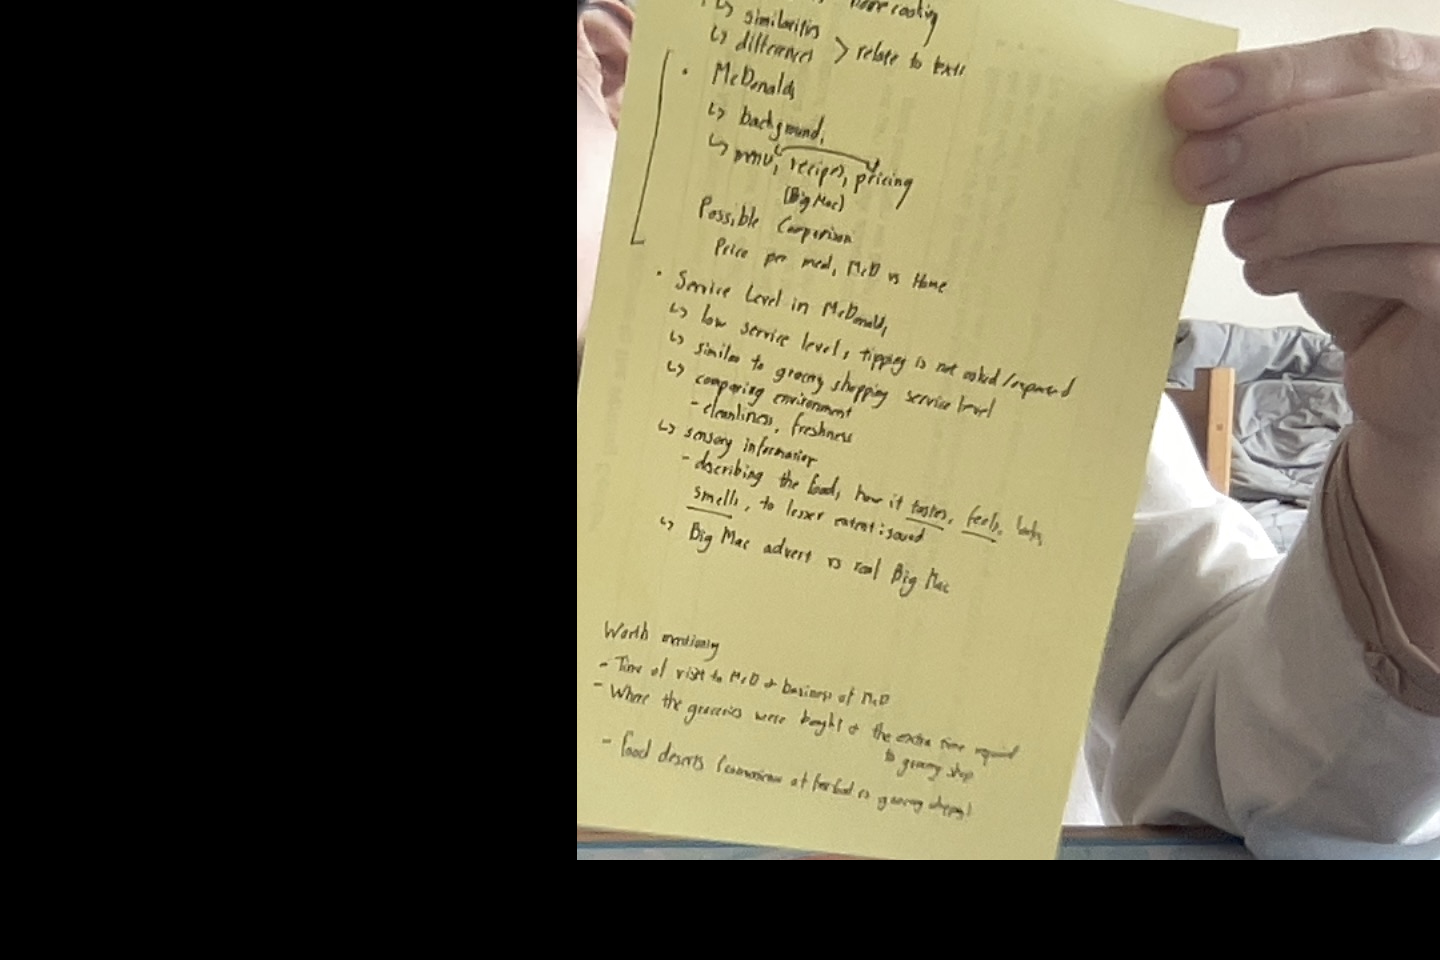 home cooking
↳ similarities
↳ differences > relate to texts
• McDonalds
↳ background,
↳ menu, recipes, pricing
(Big Mac)
Possible Comparison
Price per meal, McD vs Home
• Service Level in McDonalds
↳ low service level, tipping is not asked/expected
↳ similar to grocery shopping service level
↳ comparing environment
- cleanliness, freshness
↳ sensory information
- describing the food, how it tastes, feels, looks,
smells, to lesser extent: sound
↳ Big Mac advert vs real Big Mac
Worth mentioning
- Time of visit to McD + business of McD
- Where the groceries were bought + the extra time required
to grocery shop
- Food deserts (convenience of fast food vs grocery shopping)